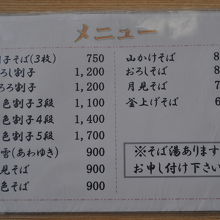 メニュー
割子そば(3段) 750
おろし割子 1,200
とろろ割子 1,200
色割子3段 1,100
色割子4段 1,400
色割子5段 1,700
雲(あわゆき) 900
見そば 900
色そば 900
山かけそば 8
おろしそば 8
月見そば
釜上げそば 6
※そば湯あります
お申し付け下さい